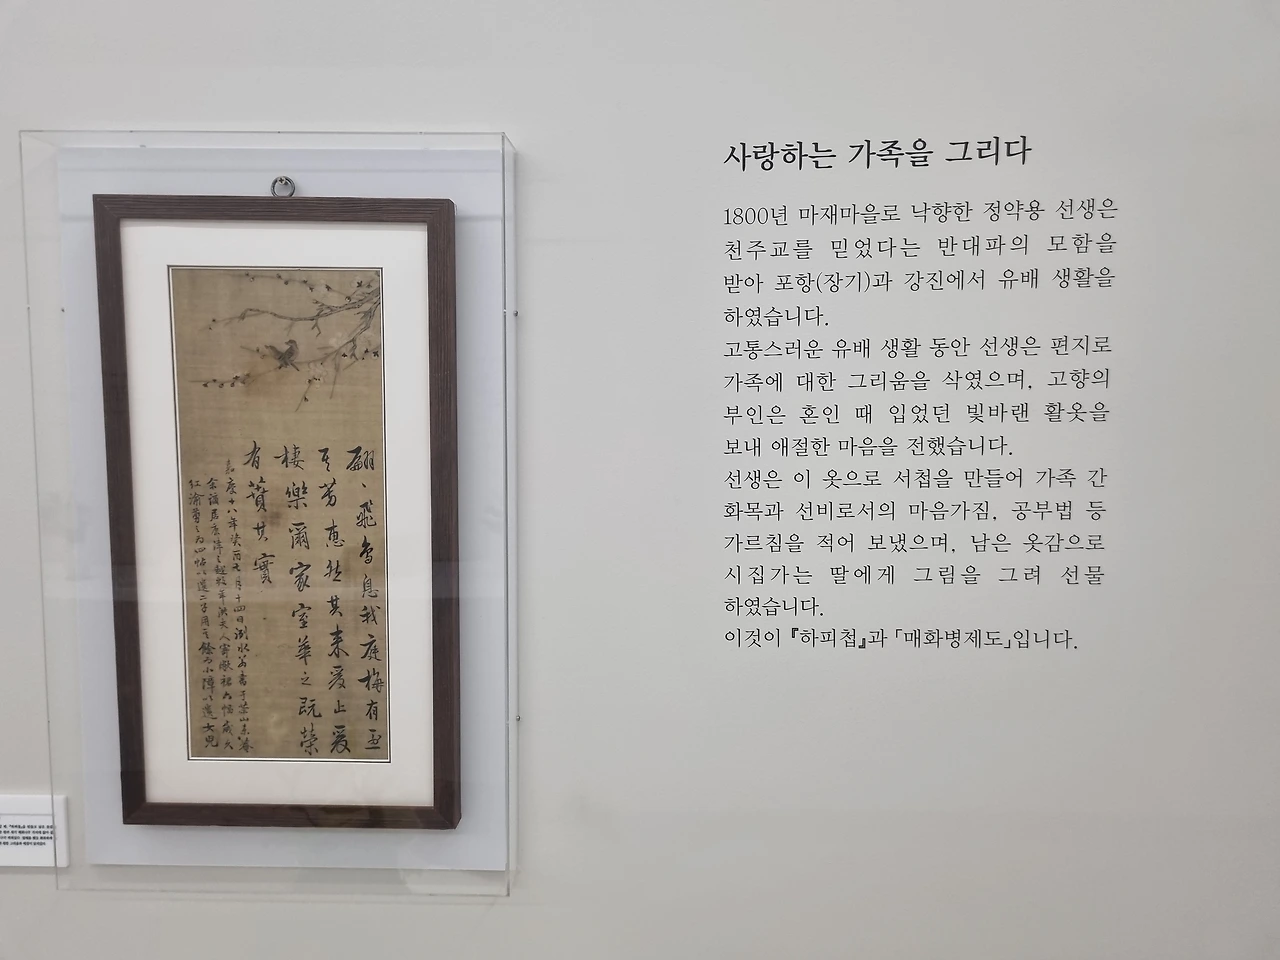 사랑하는 가족을 그리다
1800년 마재마을로 낙향한 정약용 선생은
천주교를 믿었다는 반대파의 모함을
받아 포항(장기)과 강진에서 유배 생활을
하였습니다.
고통스러운 유배 생활 동안 선생은 편지로
가족에 대한 그리움을 삭였으며, 고향의
부인은 혼인 때 입었던 빛바랜 활옷을
보내 애절한 마음을 전했습니다.
선생은 이 옷으로 서첩을 만들어 가족 간
화목과 선비로서의 마음가짐, 공부법 등
가르침을 적어 보냈으며, 남은 옷감으로
시집가는 딸에게 그림을 그려 선물
하였습니다.
이것이 『하피첩』과 「매화병제도」입니다.
翩、飛鳥息我庭梅有烈
其芳惠然其來爰止爰
棲樂爾家室華之既榮
有蕡其實
嘉慶十八年癸酉七月十四日洌水翁書于茶山東菴
余謫居康津之越數年洪夫人寄敝裙六幅歲久
紅渝剪之為四帖以遺二子用其餘為小障以遺女兒